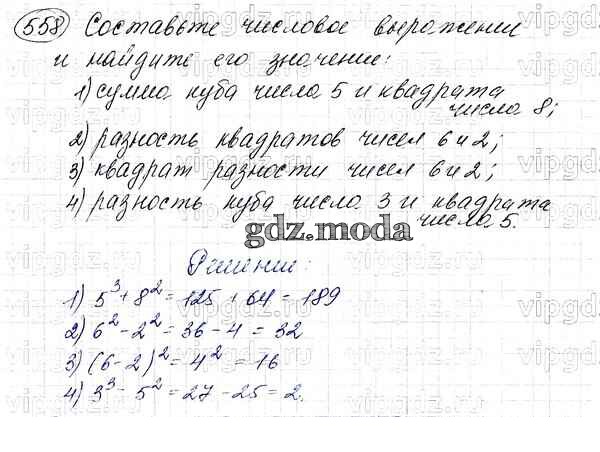 558 Составьте числовое выражение
и найдите его значение:
1) сумма куба числа 5 и квадрата
числа 8;
2) разность квадратов чисел 6 и 2;
3) квадрат разности чисел 6 и 2;
4) разность куба числа 3 и квадрата
числа 5.
gdz.moda
Решение:
1) 5³ + 8² = 125 + 64 = 189
2) 6² - 2² = 36 - 4 = 32
3) (6 - 2)² = 4² = 16
4) 3³ - 5² = 27 - 25 = 2.